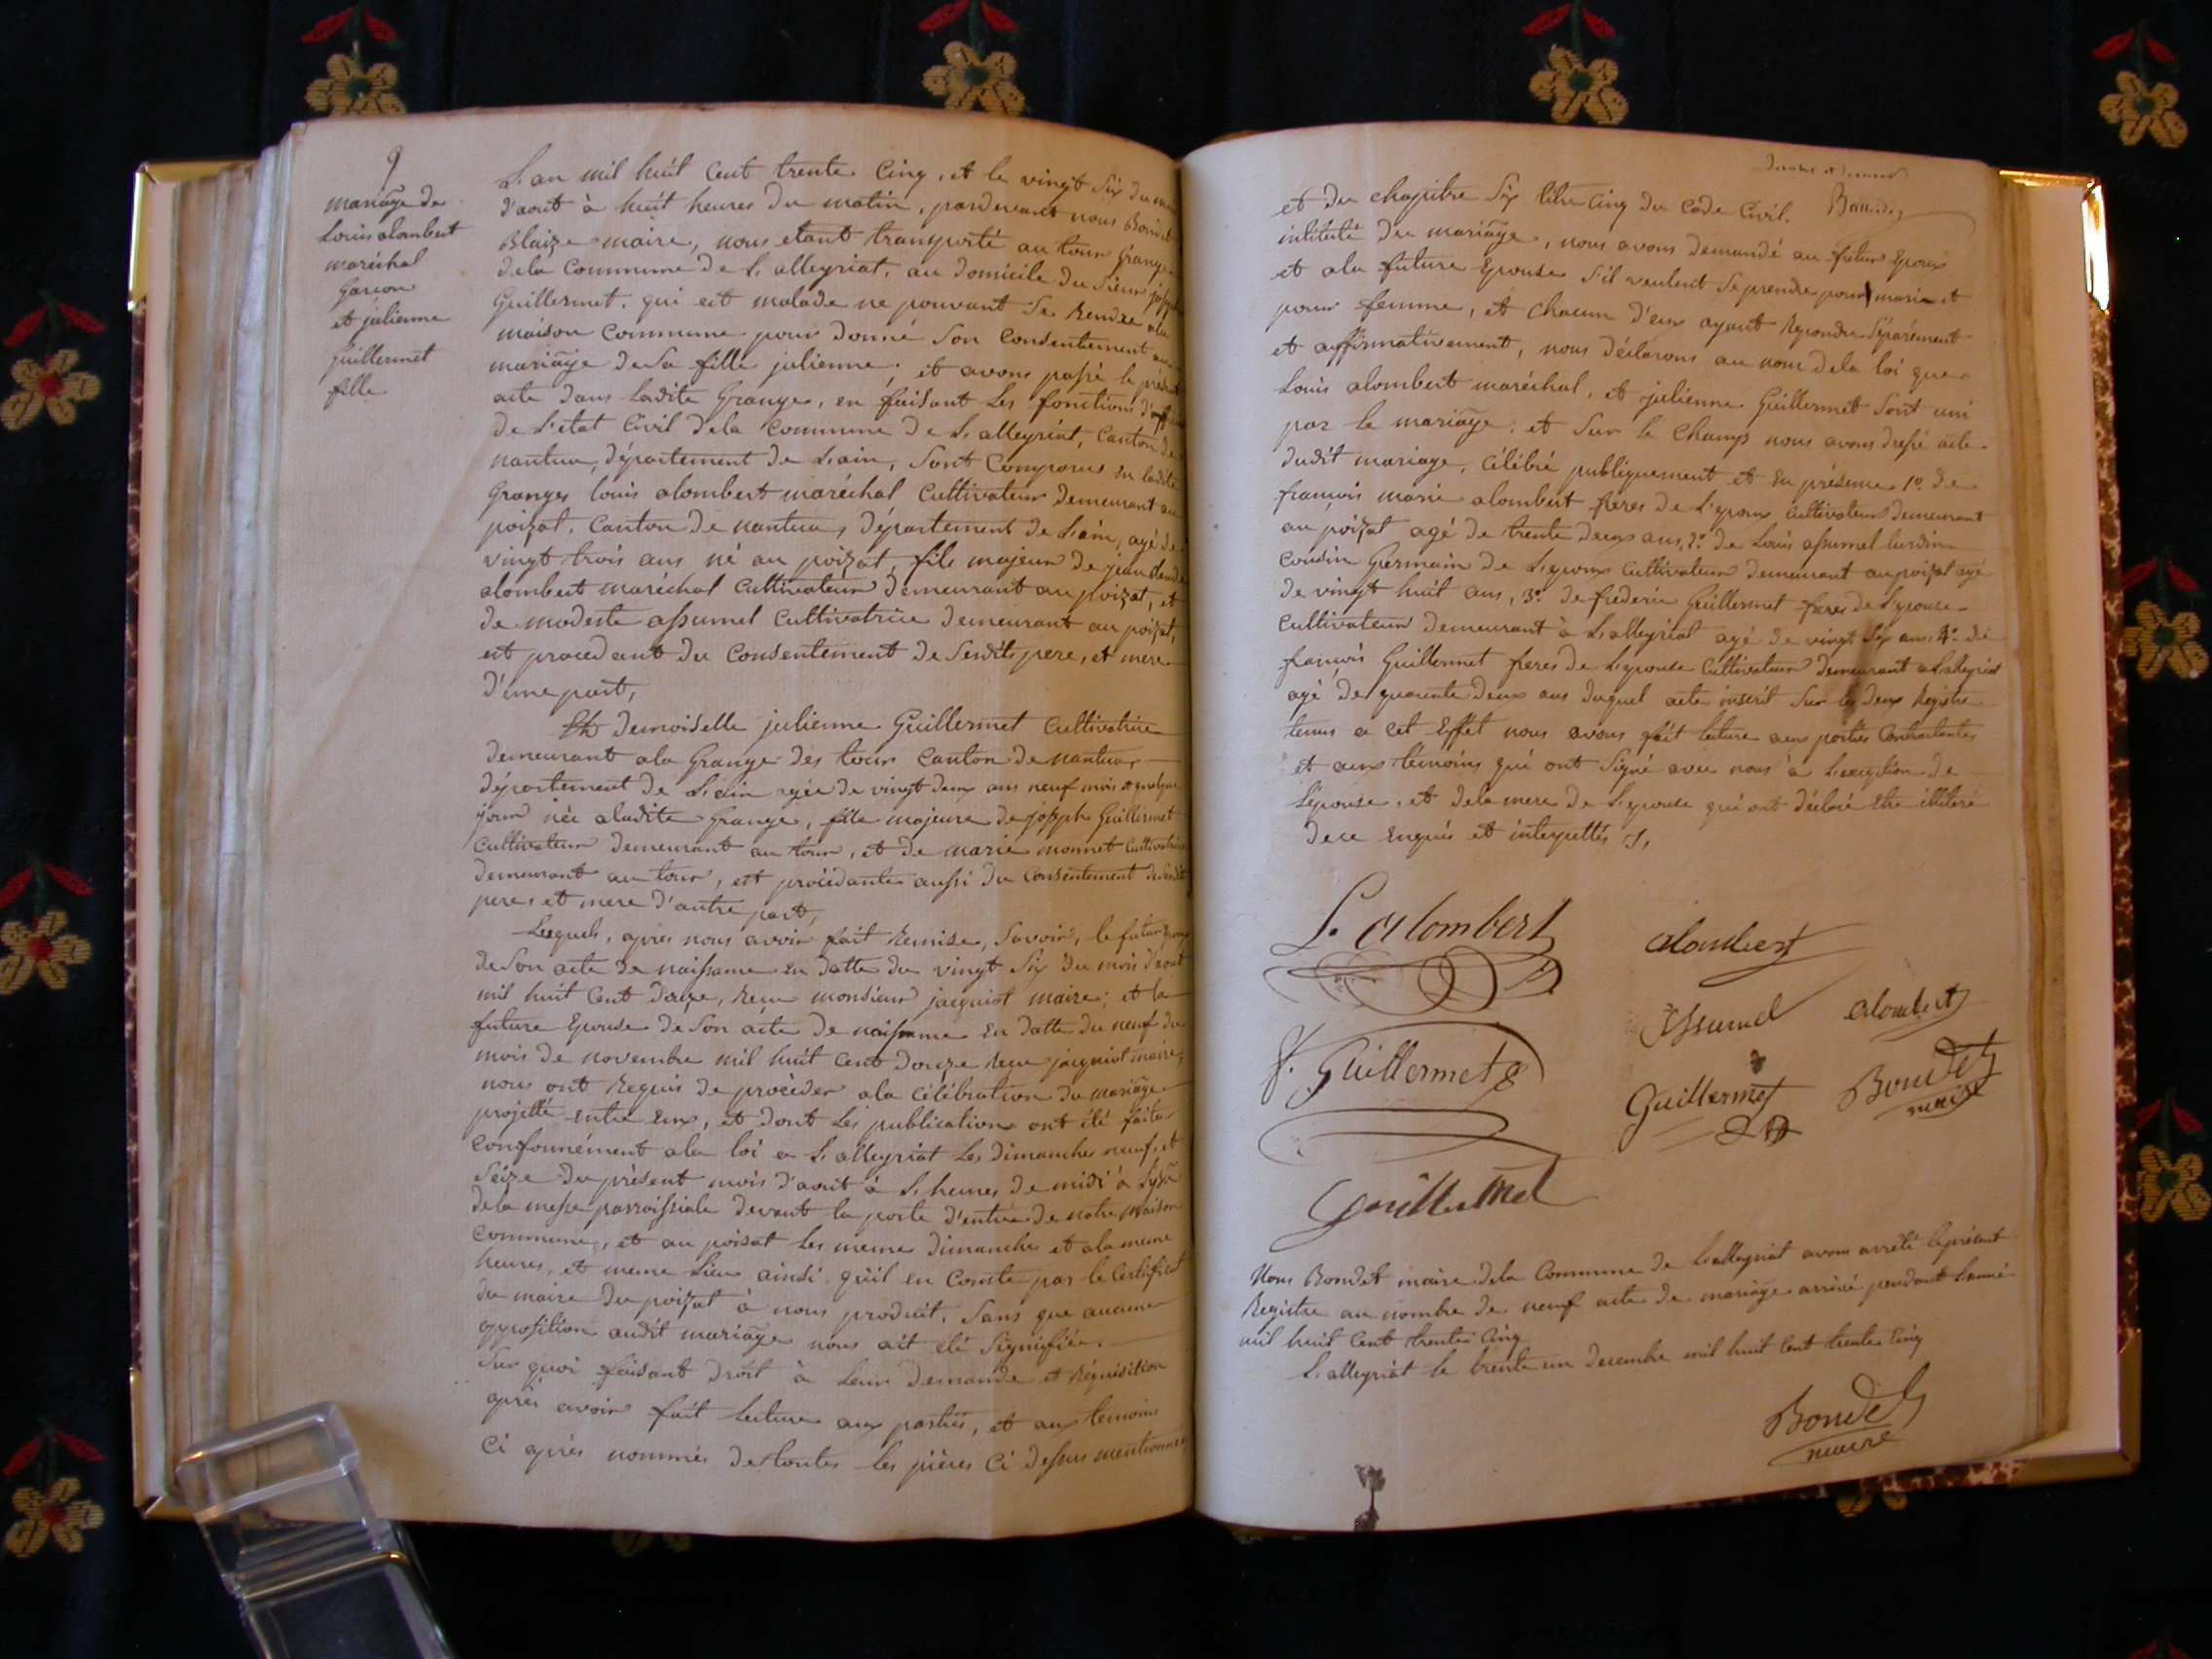 9
mariage de
Louis alombert
maréchal
Garcon
et julienne
Guillermet
fille
L'an mil huit Cent trente Cinq, et le vingt Six du mois
d'aout à huit heures du matin, pardevant nous Bondet
Blaize maire, nous etant transporté au tour Grange
dela Commune de L'alleyriat, au domicile du Sieur joseph
Guillermet, qui est malade ne pouvant Se Rendre ala
maison Commune pour donné Son Consentement au
mariage de Sa fille julienne, et avons passé le présent
acte dans Ladite Grange, en faisant Les fonctions d'officier
de L'etat Civil dela Commune de L'alleyriat, Canton de
nantua, département de L'ain, Sont Comparus en ladite
Granges louis alombert maréchal Cultivateur demeurant au
poizat, Canton de nantua, département de L'ain, agé de
vingt trois ans né au poizat, fils majeur de jean Claude
alombert maréchal Cultivateur demeurant au poizat, et
de modeste assumel Cultivatrice demeurant au poizat,
est procedant du Consentement de Sesdits pere, et mere
d'une part,
demoiselle julienne Guillermet Cultivatrice
demeurant ala Grange des tour Canton de nantua,
département de L'ain agée de vingt deux ans neuf mois et quelque
jour née aladite Grange, fille majeure de joseph Guillermet
Cultivateur demeurant au tour, et de marie monnet Cultivatrice
demeurant au tour, est procèdante aussi du Consentement de Sesdit
pere, et mere d'autre part,
Lesquels, apres nous avoir fait Remise, Savoir, le futur Epoux
de Son acte de naissance en datte du vingt Six du mois d'aout
mil huit Cent douze, Reçu monsieur jacquiot maire; et la
future Epouse de Son acte de naissance en datte du neuf du
mois de novembre mil huit Cent douze Reçu jacquiot maire,
nous ont Requis de procèder ala Célébration du mariage
projetté entre Eux, et dont Les publications ont été faite
conformément ala loi a L'alleyriat Les dimanches neuf, et
Seize du présent mois d'aout à L'heures de midi à
dela messe parroissiale devant la porte d'entrée de notre maison
Commune, et au poizat Les meme dimanche et ala meme
heures, et meme Lieu ainsi qu'il en Conste par le Certificat
du maire du poizat à nous produit, Sans que aucune
opposition audit mariage nous ait été Signifiée.
Sur quoi faisant droit à Leur demande et Réquisition
après avoir fait Lecture aux parties, et aux temoins
Ci après nommés de toutes les pièces Ci dessus mentionnées
et du chapitre Six titre Cinq du Code Civil.
intitulé du mariage, nous avons demandé au futur Epoux
et ala future Epouse S'il veulent Se prendre pour marie et
pour femme, et chacun d'eux ayant Repondu Séparément
et affirmativement, nous déclarons au nom dela loi que
Louis alombert maréchal, et julienne Guillermet Sont uni
par le mariage; et Sur le Champs nous avons dressé acte
dudit mariage, Célébré publiquement et En présence 1º de
françois marie alombert freres de L'epoux Cultivateur demeurant
au poizat agé de trente deux ans, 2º de Louis assumel lurdin
cousin Germain de L'epoux Cultivateur demeurant au poizat agé
de vingt huit ans, 3º de frederic Guillermet freres de L'epouse
Cultivateur demeurant à L'alleyriat agé de vingt Six ans, 4º de
françois Guillermet freres de L'epouse Cultivateur demeurant a L'alleyriat
agé de quarante deux ans duquel acte inscrit Sur les deux Registre
tenus a cet Effet nous avons fait lecture aux parties Contractantes
et aux témoins qui ont Signé avec nous à L'exception de
L'epouse, et dela mere de L'epouse qui ont déclaré Etre illiteré
de ce Enquis et interpettés
L. Alombert
alombert
Assumel
alombert
f. Guillermet
Guillermet
Bondet
maire
Guillermet
Nous Bondet maire dela Commune de L'alleyriat avons arrêté le présent
Registre au nombre de neuf acte de mariage arrivé pendant L'anné
mil huit Cent trente Cinq
L'alleyriat le trente un decembre mil huit Cent trente Cinq
Bondet
maire